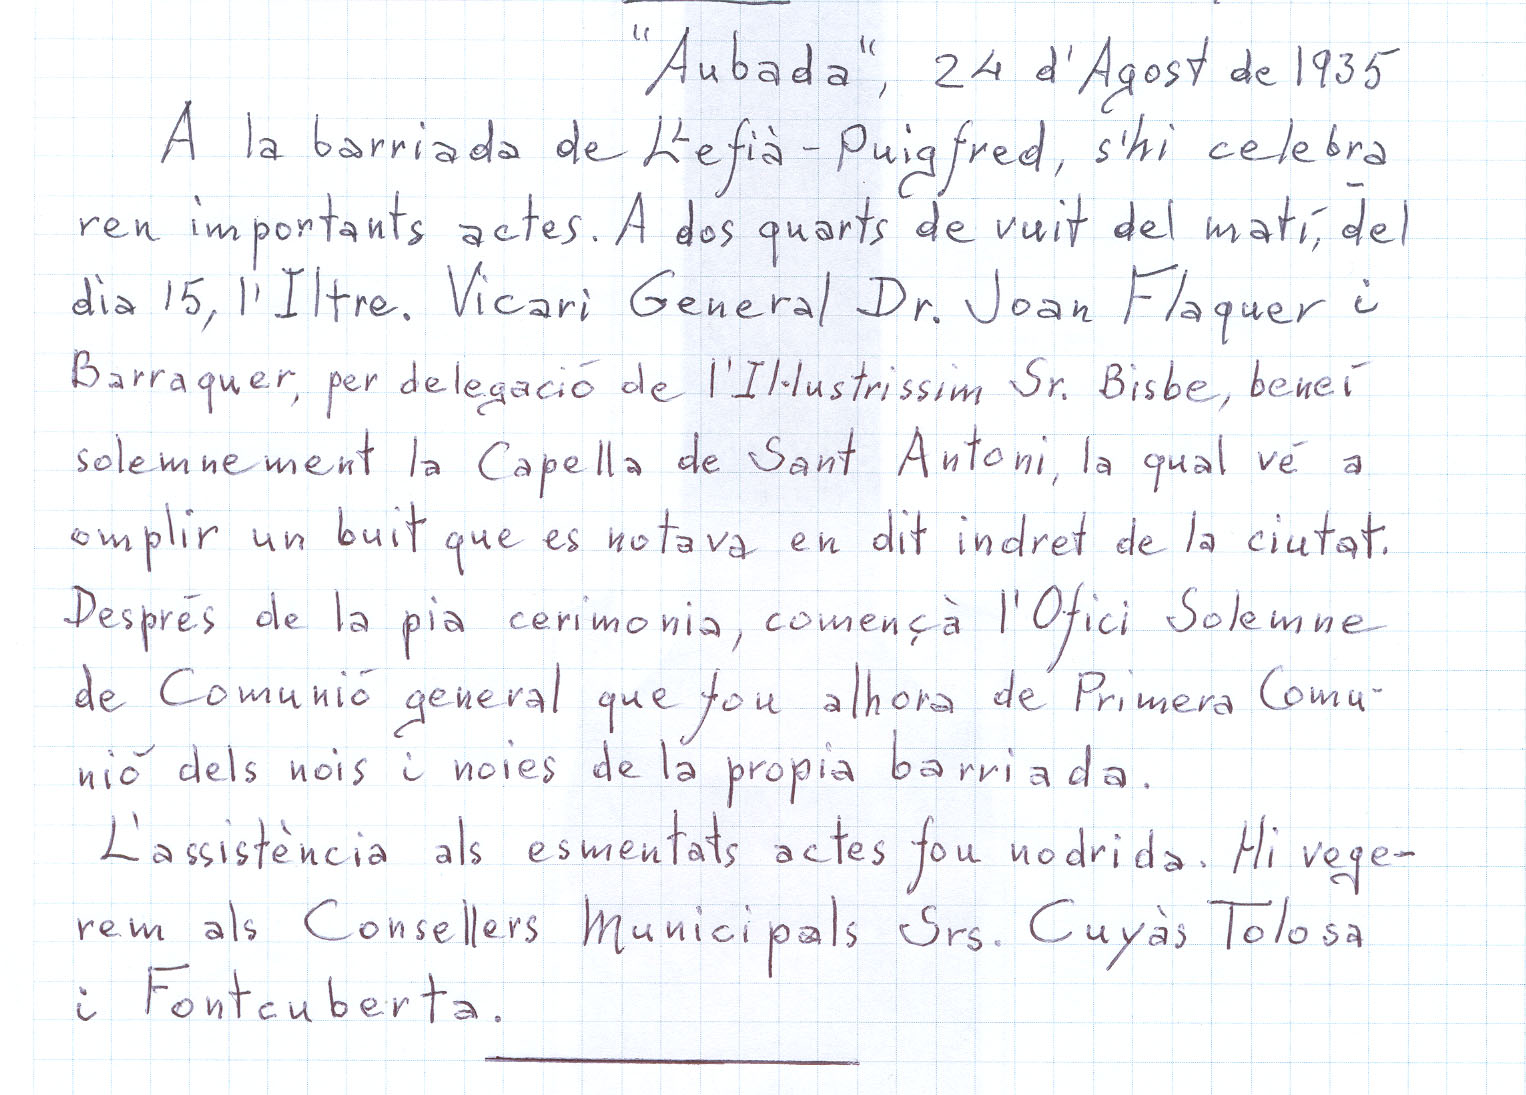 "Aubada", 24 d'Agost de 1935
A la barriada de Llefià-Puigfred, s'hi celebra
ren importants actes. A dos quarts de vuit del matí, del
dìa 15, l'Iltre. Vicari General Dr. Joan Flaquer i
Barraquer, per delegació de l'Il·lustrissim Sr. Bisbe, beneí
solemnement la Capella de Sant Antoni, la qual vé a
omplir un buit que es notava en dit indret de la ciutat.
Després de la pia cerimonia, començà l'Ofici Solemne
de Comunió general que fou alhora de Primera Comu-
nió dels nois i noies de la propia barriada.
L'assistència als esmentats actes fou nodrida. Hi vege-
rem als Consellers Municipals Srs. Cuyàs Tolosa
i Fontcuberta.